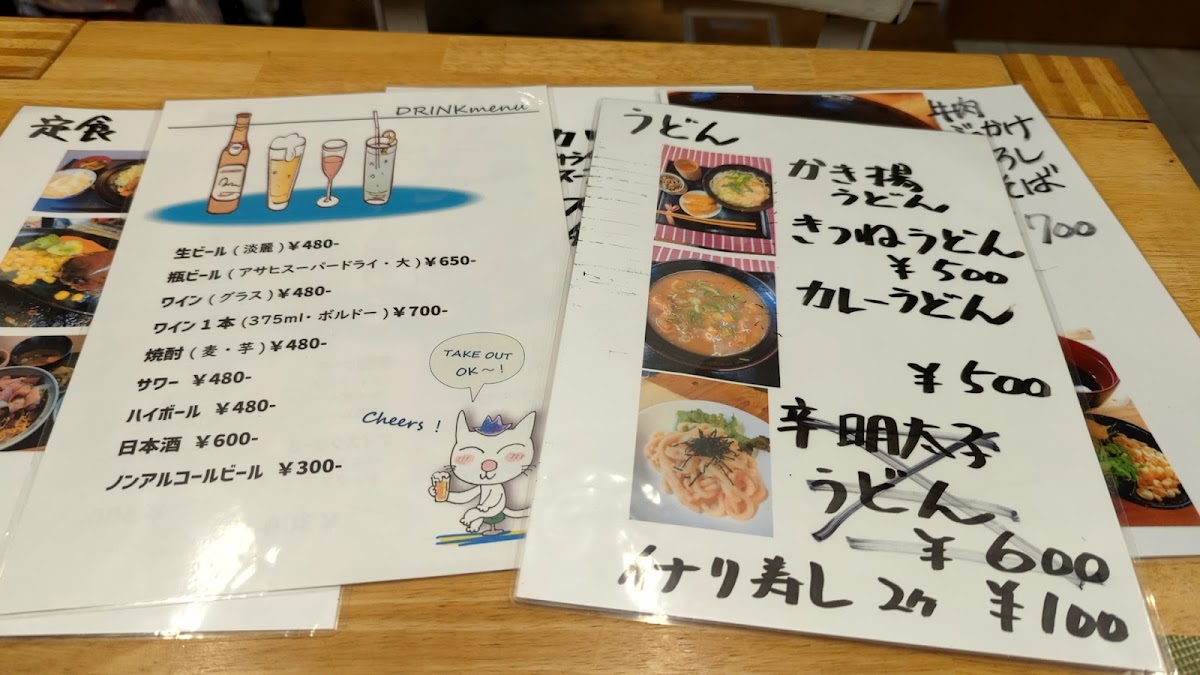 定食
DRINKmenu
生ビール (淡麗) ¥480-
瓶ビール (アサヒスーパードライ・大) ¥650-
ワイン (グラス) ¥480-
ワイン1本 (375ml・ボルドー) ¥700-
焼酎 (麦・芋) ¥480-
サワー ¥480-
ハイボール ¥480-
日本酒 ¥600-
ノンアルコールビール ¥300-
TAKE OUT
OK〜!
Cheers!
うどん
かき揚
うどん
きつねうどん
¥500
カレーうどん
¥500
辛明太子
うどん
¥600
イナリ寿し 2ケ ¥100
牛肉
ぶっかけ
ろし
そば
700